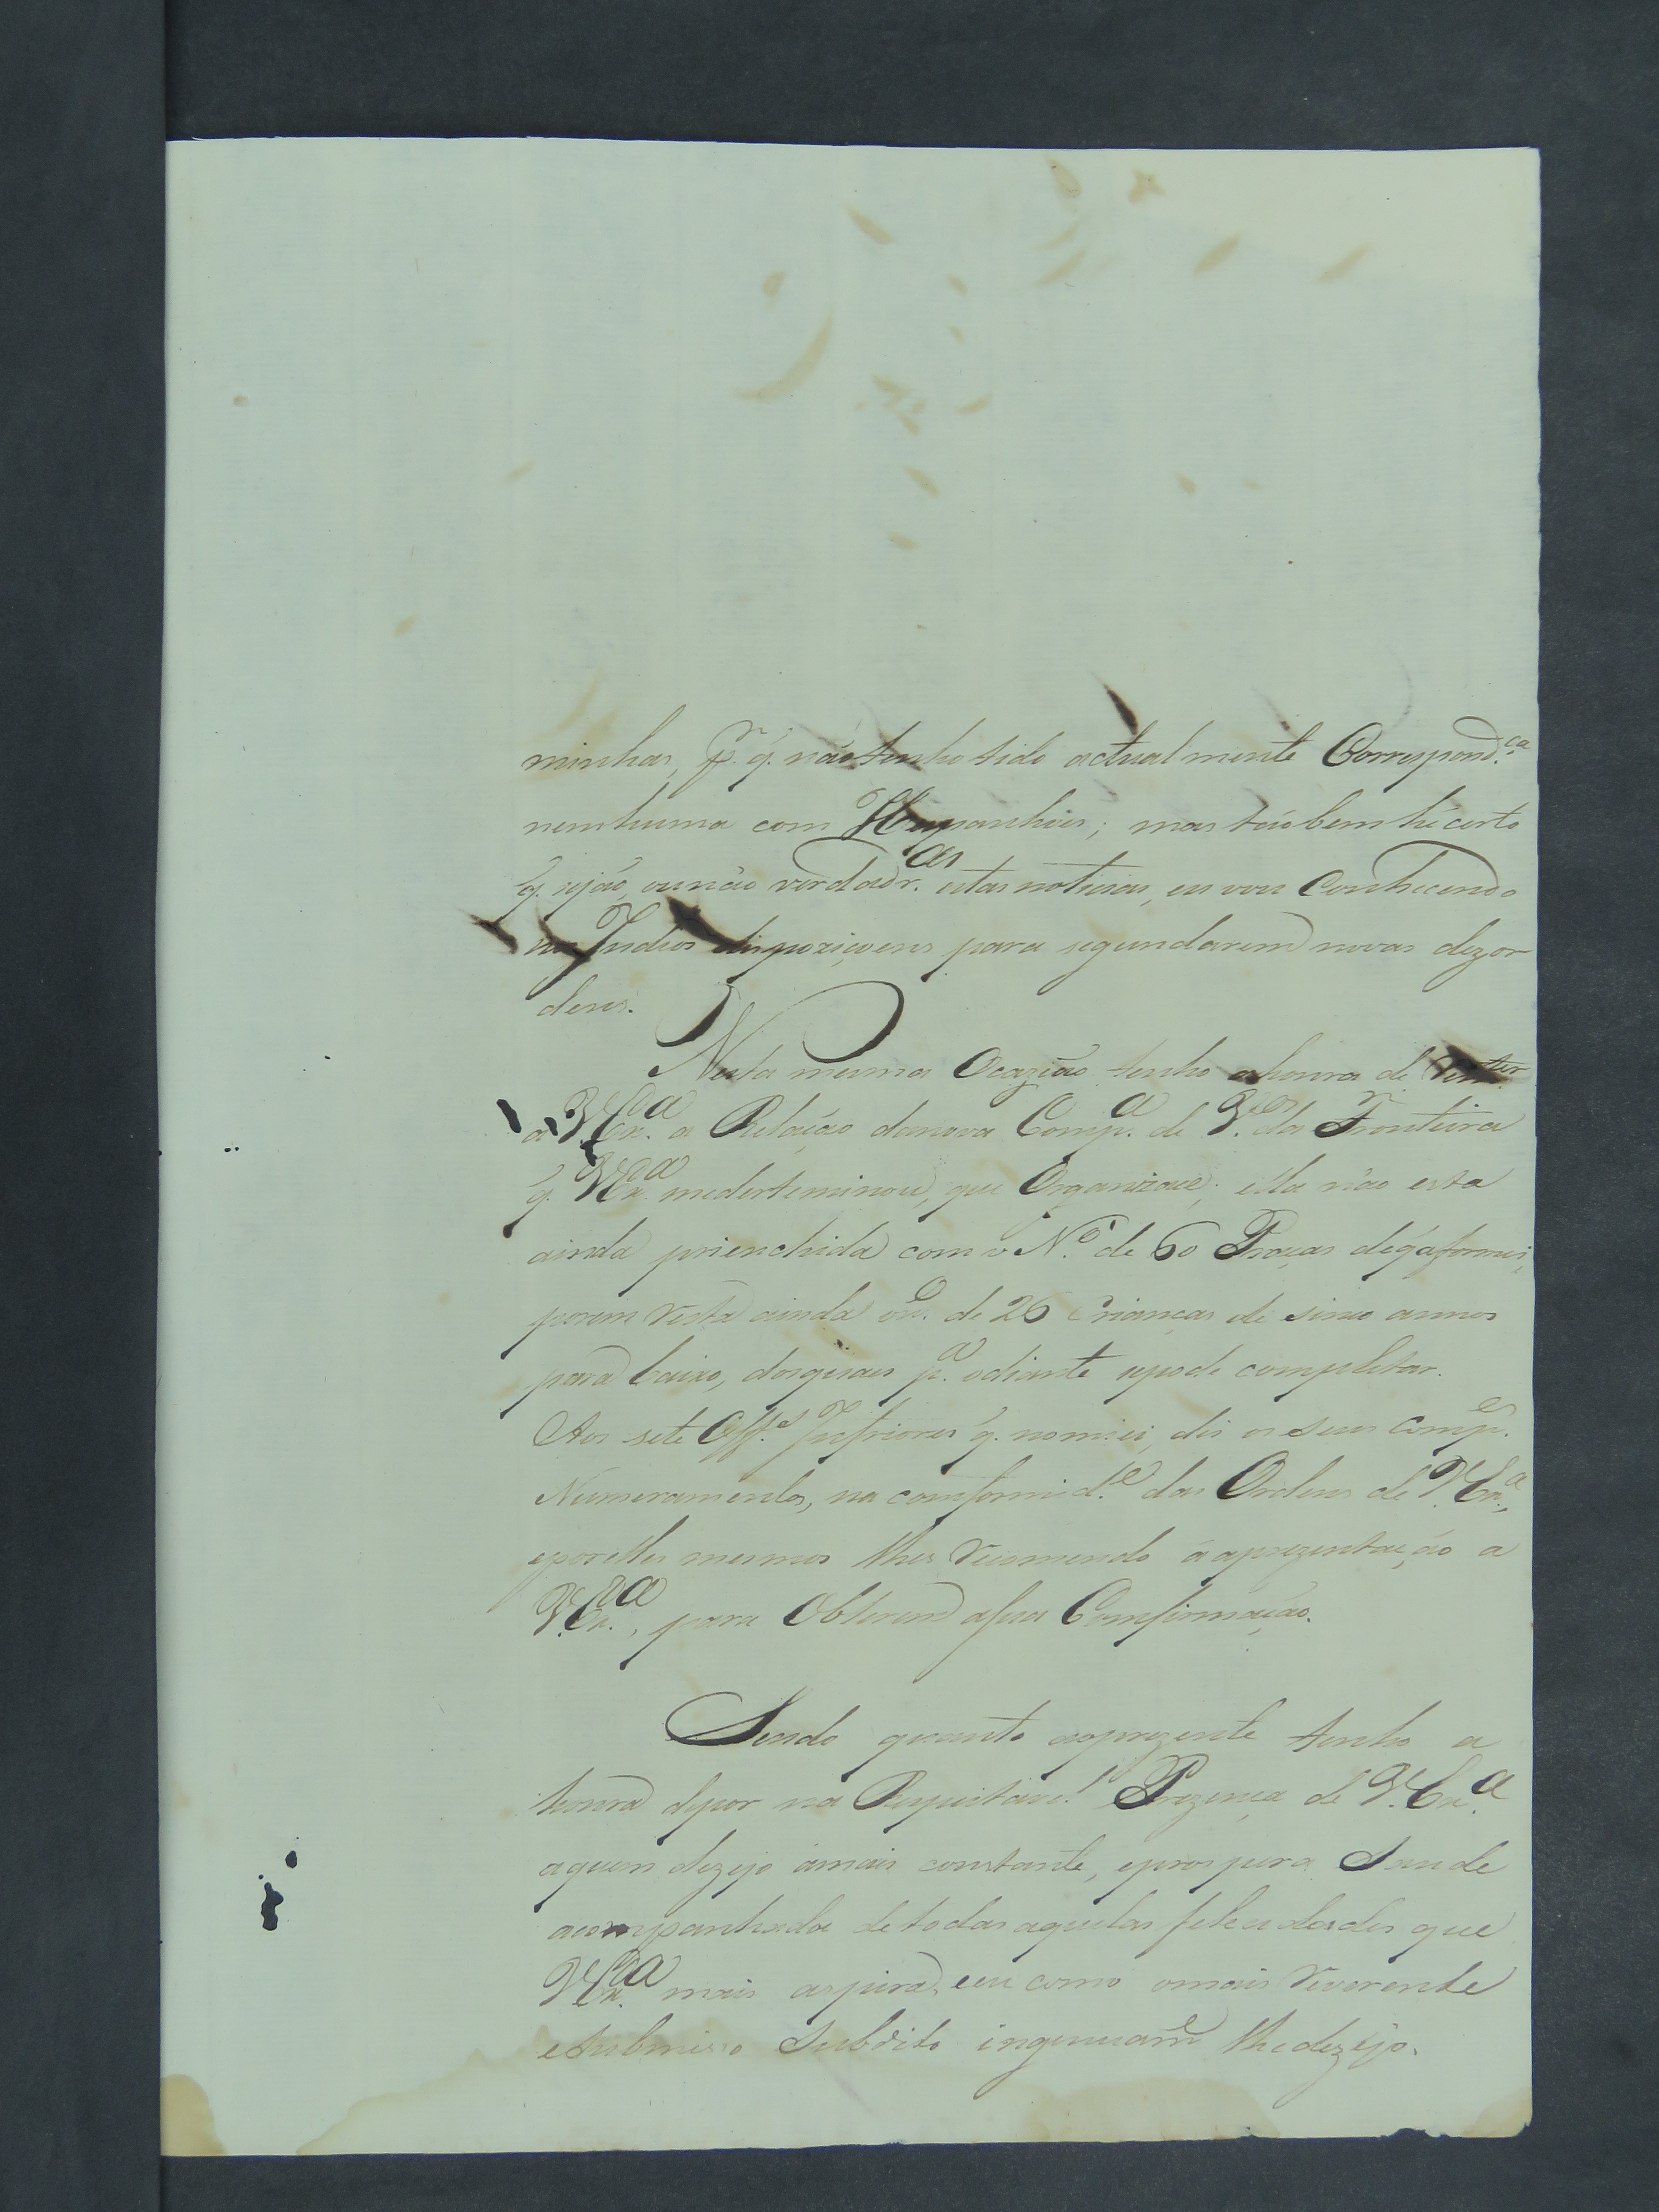 minhas, p.r q. não tenho tido actualmente Correspond.ca
nenhuma com Hespanhóes; mas tãobem hé certo
q. sejão, ou não verdadr.as estas noticias, eu vou Conhecendo
nos Indios dispoziçoens para segundarem novas dezor
dens.
Nesta mesma Ocazião tenho ahonra de
a V.Ex.a a Relação danova Comp.a de V.es da Fronteira
q. V.Ex.a medeterminou, que Organizace; ella não esta
ainda prienchida com o N.o de 60 Praças
porem resta ainda on.o de 26 Crianças de sinco annos
para baixo, dosquais p.a odiante sepode completar.
Aos sete Off.es Inferiores q. nomiei, dei os seus Comp.es
Numeramentos, na comformid.e das Ordens de V.Ex.a,
eporelles mesmos lhes recomendo aaprezentação a
V.Ex.a, para Obterem asua Comfirmação.
Sendo quanto aoprezente tenho a
honra depor na Respeitavel Prezença de V.Ex.a
aquem dezejo amais constante, eprospera Saude
acompanhada detodas aquelas felecidades que
V.Ex.a mais aspira, eeu como omais reverente
esubmisso Subdito ingenuam.e lhedezejo.